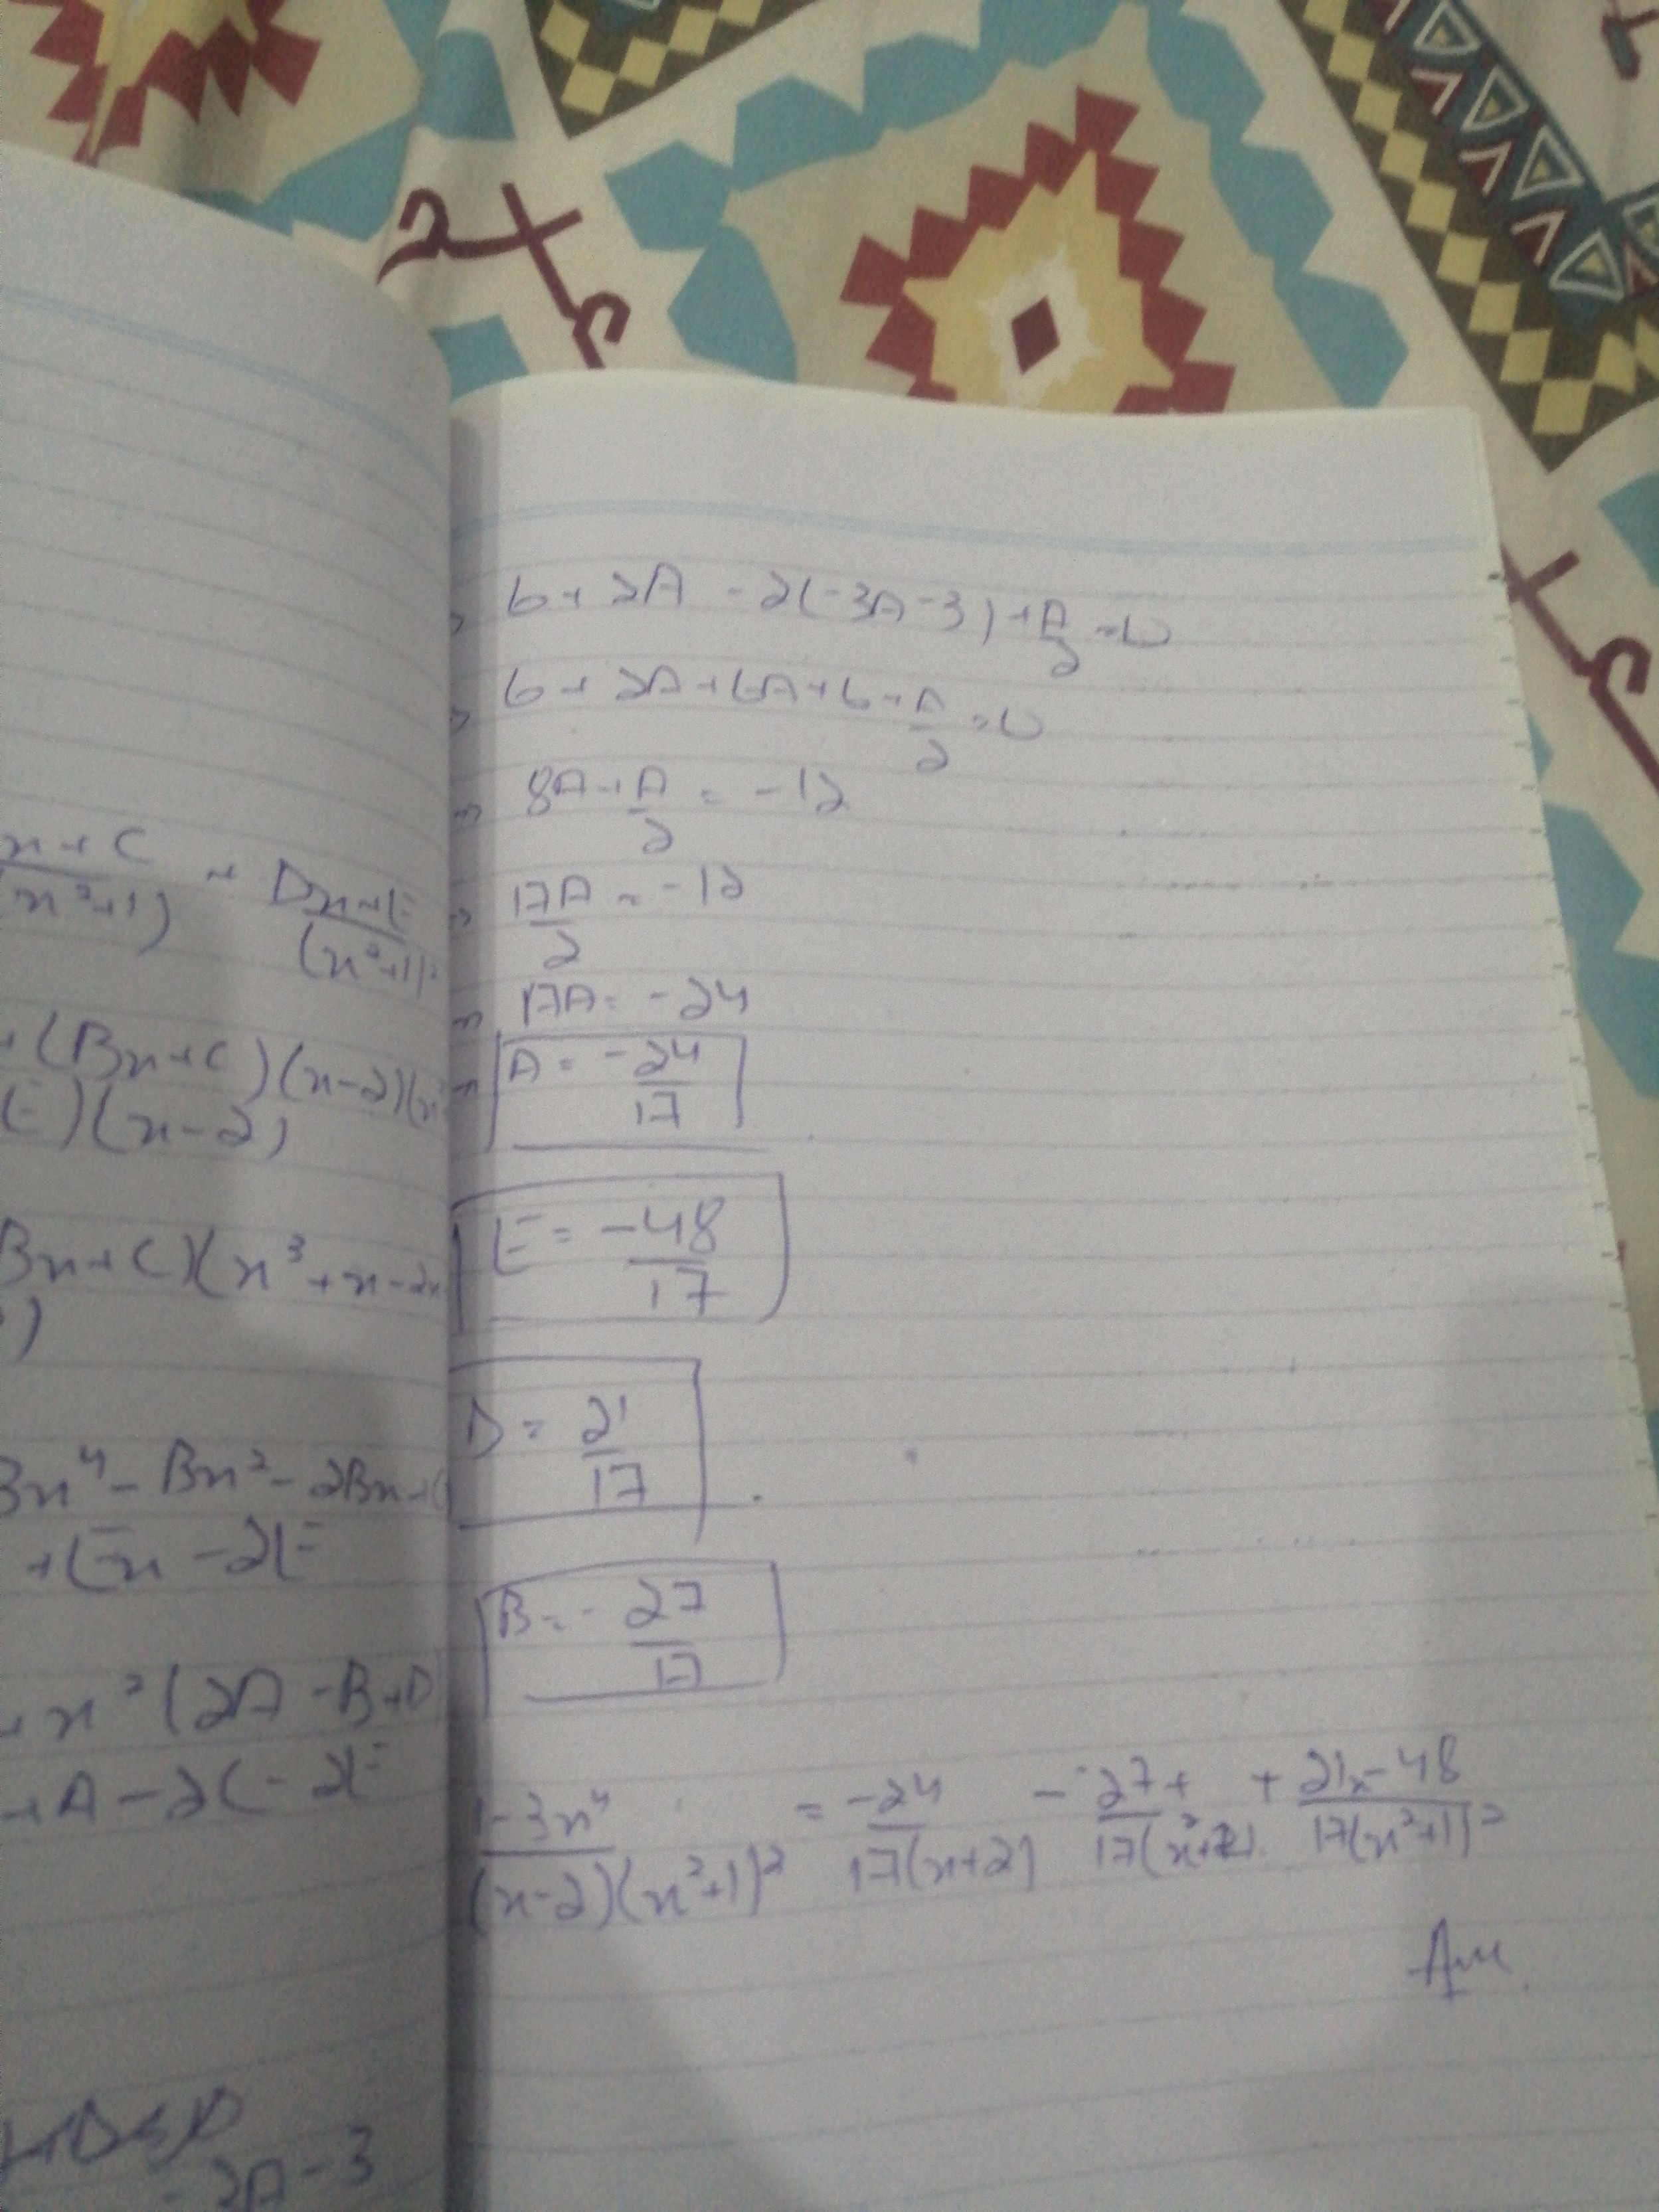 x+C/(x²+1) + Dx+E/(x²+1)²
+(Bx+C)(x-2)(x²
E)(x-2)
Bx+C)(x³+x-2x
)
Bx⁴-Bx²-2Bx+C
+Ex-2E
+x²(2A-B+D
+A-2C-2E
-2A-3
⇒ 6+2A-2(-3A-3)+A/2=0
⇒ 6+2A+6A+6+A/2=0
⇒ 8A+A/2=-12
⇒ 17A/2=-12
⇒ 17A=-24
⇒ A=-24/17
E=-48/17
D=21/17
B=-27/17
1-3x⁴/(x-2)(x²+1)² = -24/17(x+2) - 27+/17(x²+ ) + 21x-48/17(x²+1)²
Ans.